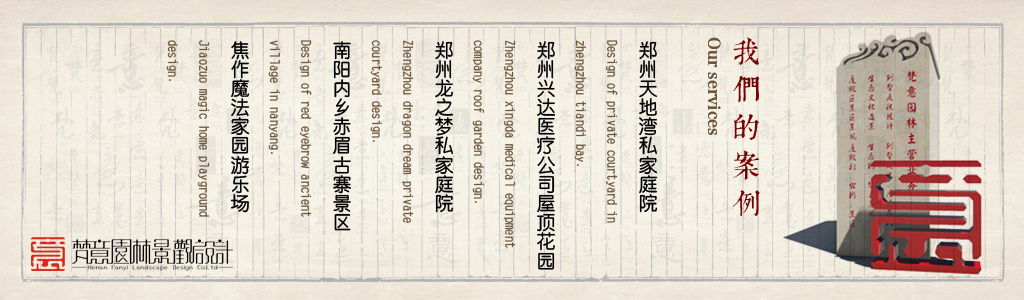 我們的案例
Our services
郑州天地湾私家庭院
Design of private courtyard in
zhengzhou tiandi bay.
郑州兴达医疗公司屋顶花园
Zhengzhou xingda medical equipment
company roof garden design.
郑州龙之梦私家庭院
Zhengzhou dragon dream private
courtyard design.
南阳内乡赤眉古寨景区
Design of red eyebrow ancient
village in nanyang.
焦作魔法家园游乐场
Jiaozuo magic home playground
design.
梵意园林主营业务
梵意園林景觀設計
Henan Fanyi Landscape Design Co.Ltd